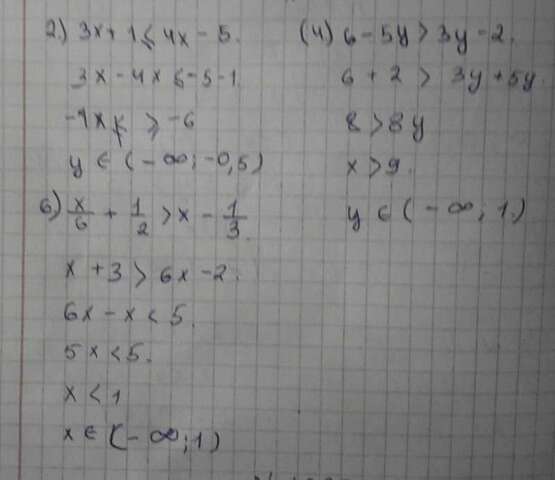 2.) 3x + 1 ≤ 4x - 5.
3x - 4x ≤ -5 -1
-1x ≤ ⩾ -6
y ∈ (-∞; -0,5)
6.) x/6 + 1/2 > x - 1/3.
x + 3 > 6x - 2.
6x - x < 5.
5x < 5.
x < 1
x ∈ (-∞; 1)
(4) 6 - 5y > 3y - 2.
6 + 2 > 3y + 5y.
8 > 8y
x > 9.
y ∈ (-∞; 1.)